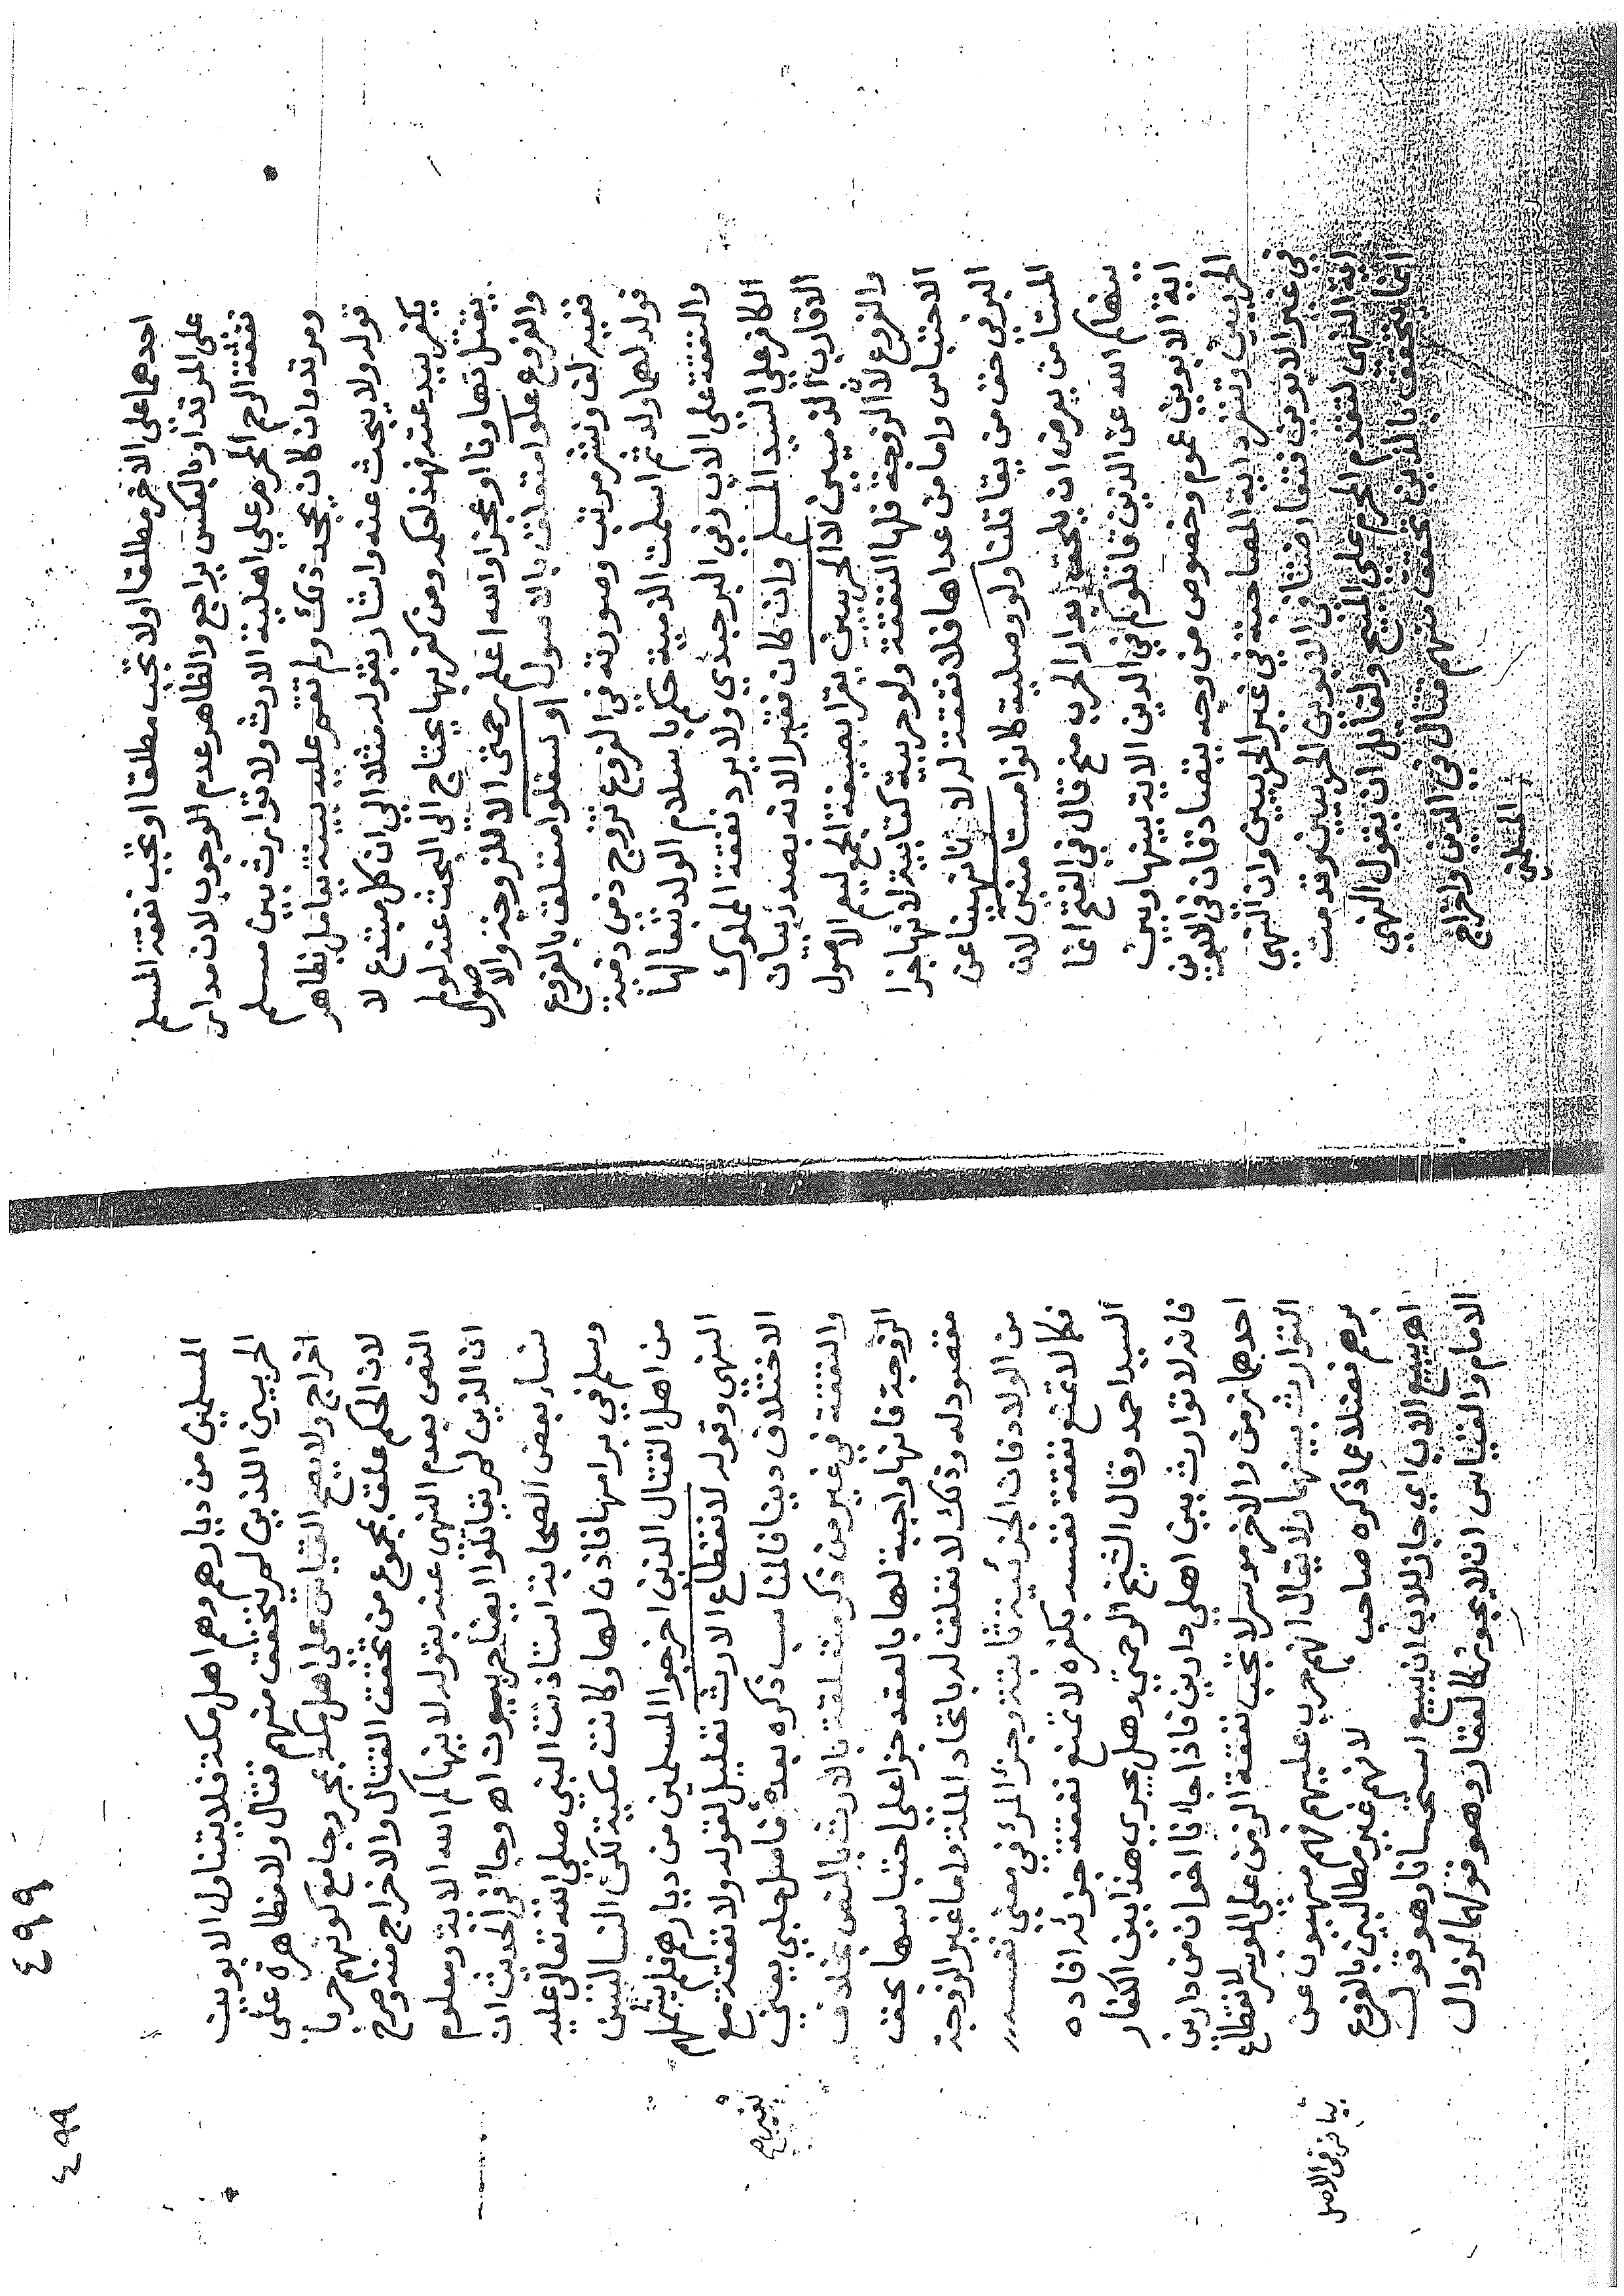 احدهما على الاخر مطلقا او لا تجب مطلقا او تجب نفقة المسلم
على المرتد او بالعكس يراجع والظاهر عدم الوجوب لان مدار
نفقة الرحم المحرم على اهلية الارث ولا توارث بين مسلم
ومرتد وان كان يجحد ذلك ولم تقم عليه بينة يعامل بظاهر
قوله ولا يبحث عنه واشار بقوله مثلا الي ان كل مبتدع لا
يكفر ببدعته فهذا حكمه ومن كفر بها يحتاج الى البحث عنه لو لم
يمتثل تهاونا او عجزا والله اعلم رحمتى الا للزوجة والاصول
والفروع علوا متعلق بالاصول او سفلوا متعلق بالفروع
ففيه لف ونشر مرتب وصورته في الفروع تزوج ذمي ذمية
فولد لهما ولد ثم اسلمت الذمية حكم باسلام الولد تبعا لها
والنفقة على الاب وفي البرجندي ولا يرد نفقة المملوك
الكافر على السيد المسلم وان كان فقيرا لانه بصدد بيان
الاقارب الذميين لا الحربيين يقرا بصيغة الجمع ليعم الاصول
والفروع لا الزوجة فلها النفقة ولو حربية كتابية لانها جزا
الاحتباس واما من عداها فلا نفقة له لانا نهينا عن
البر في حق من يقاتلنا ولو وصلية كانوا مستامنين لان
المستامن بعرض ان يلحق بدار الحرب منح قال في الفتح انما
ينهاكم الله عن الذين قاتلوكم في الدين الاية بينها وبين
اية الابوين عموم وخصوص من وجه يتصادقان في الابوين
الحربيين وتنفرد اية المصاحبة في غير الحربيين وان النهي
في غير الابوين فتعارضتا في الابوين الحربيين وقدمت
اية النهى لتقدم المحرم على المبيح ولقايل ان يقول النهي
انما يتحقق بالذين تحقق منهم قتال في الدين واخراج
المسلمين
٤٩٩
٤٩٩
المسلمين من ديارهم وهم اهل مكة فلا يتناول الابوين
الحربيين اللذين لم يتحقق منهم قتال ولا مظاهرة على
اخراج ولا يصح القياس على اهل مكة بمجرد جامع كونهم حربا
لان الحكم علق بمجموع من تحقق القتال والاخراج منه واصرح
النص بعدم النهى عنه بقوله لا ينهاكم الله الاية ومعلوم
ان الذين لم يقاتلوا ايضا حربيون اه وجاء في الحديث ان
نساء بعض الصحابة استاذنت النبي صلى الله تعالى عليه
وسلم في بر امها فاذن لها وكانت مكية لكن النسا ليس
من اهل القتال الذين اخرجوا المسلمين من ديارهم فلم يشملهم
النهى وقوله لانقطاع الارث تعليل لقوله ولا نفقة مع
الاختلاف دينا فالمناسب ذكره بعده فامل حلبي يعني
بغيره
والنفقة في غير من ذكر متعلقة بالارث بالنص بخلاف
الزوجة فانها واجبة لها بالعقد جزا على احتباسها بحق
مقصود له وذلك لا تعلق له باتحاد الملة واما غير الزوجة
من الولاد فان الجزئية ثابتة وجزء المرء في معنى نفسه
فكما لا تمتنع نفقة نفسه بكفره لا تمتنع نفقة جزئه افاده
السيد احمد وقال الشيخ الرحمتي وهل يجري هذا بين الكفار
فانه لا توارث بين اهلي دارين فاذا جانا اخوان من دارين
احدهما زمن والاخر موسر لا تجب نفقة الزمن على الموسر لانقطاع
التوارث بينهما ولا يقال انهم حرب عليهم فهم منهيون عن
برهم فضلا عما ذكره صاحب لانهم غير مطالبين بالفروع
بياض في الاصل
اه يبيع الاب اي جاز للاب ان يبيع استحسانا وهو قول
الامام والقياس ان لا يجوز كالعقار وهو قولهما لزوال